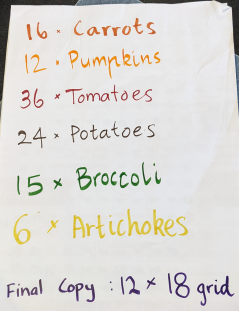 16 × Carrots
12 × Pumpkins
36 × Tomatoes
24 × Potatoes
15 × Broccoli
6 × Artichokes
Final Copy : 12 × 18 grid